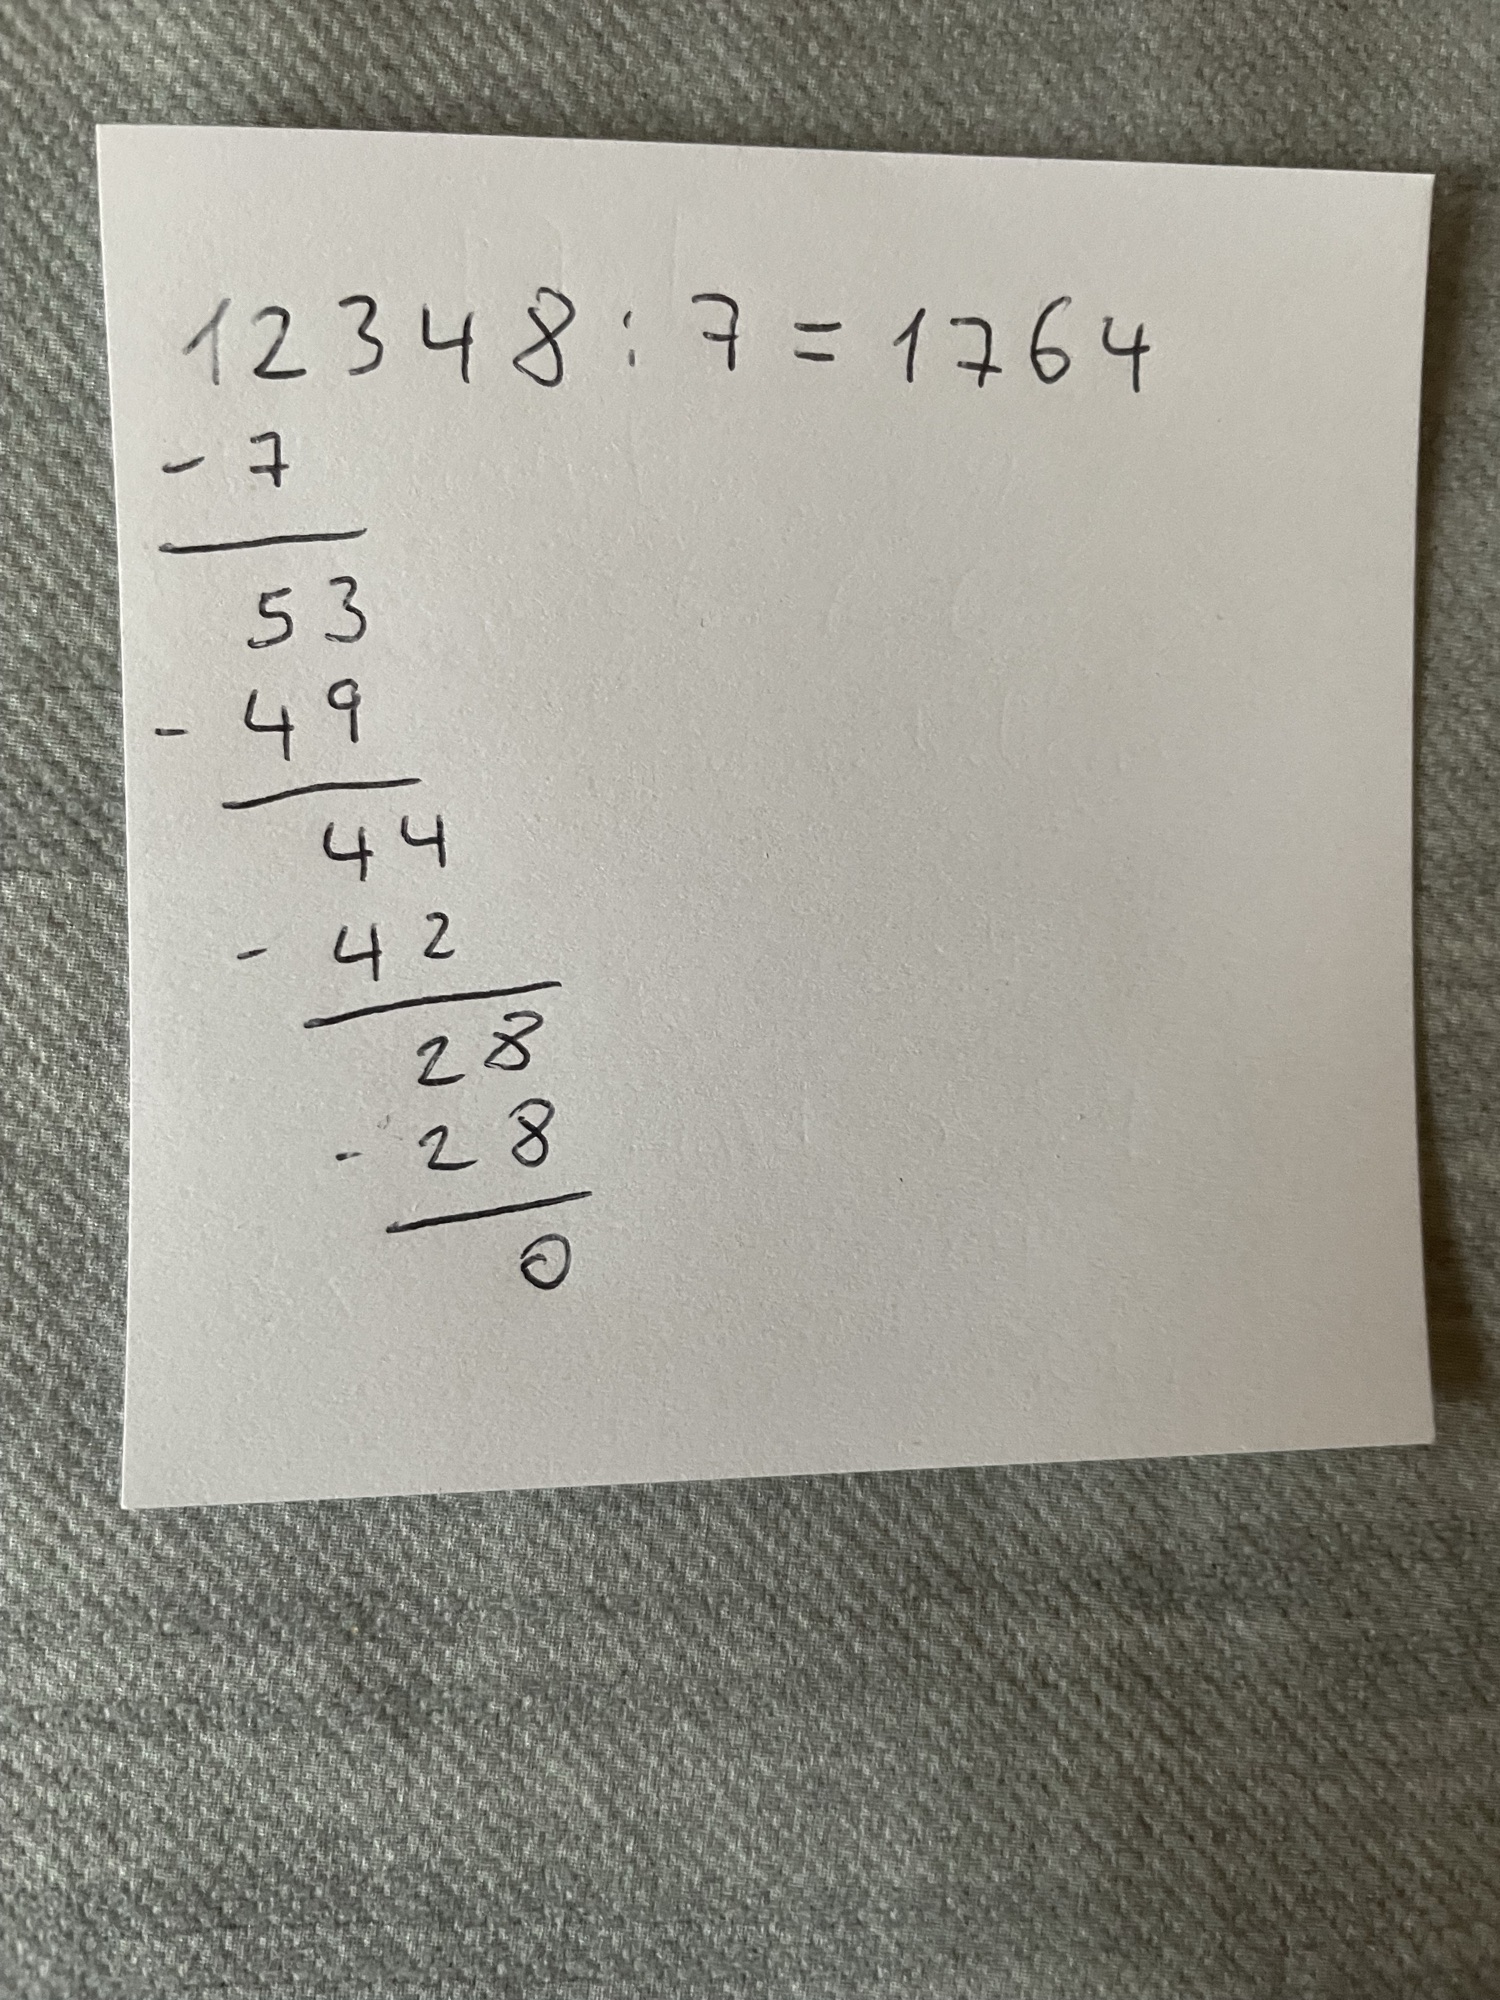 12348:7=1764
-7
53
-49
44
-42
28
-28
0